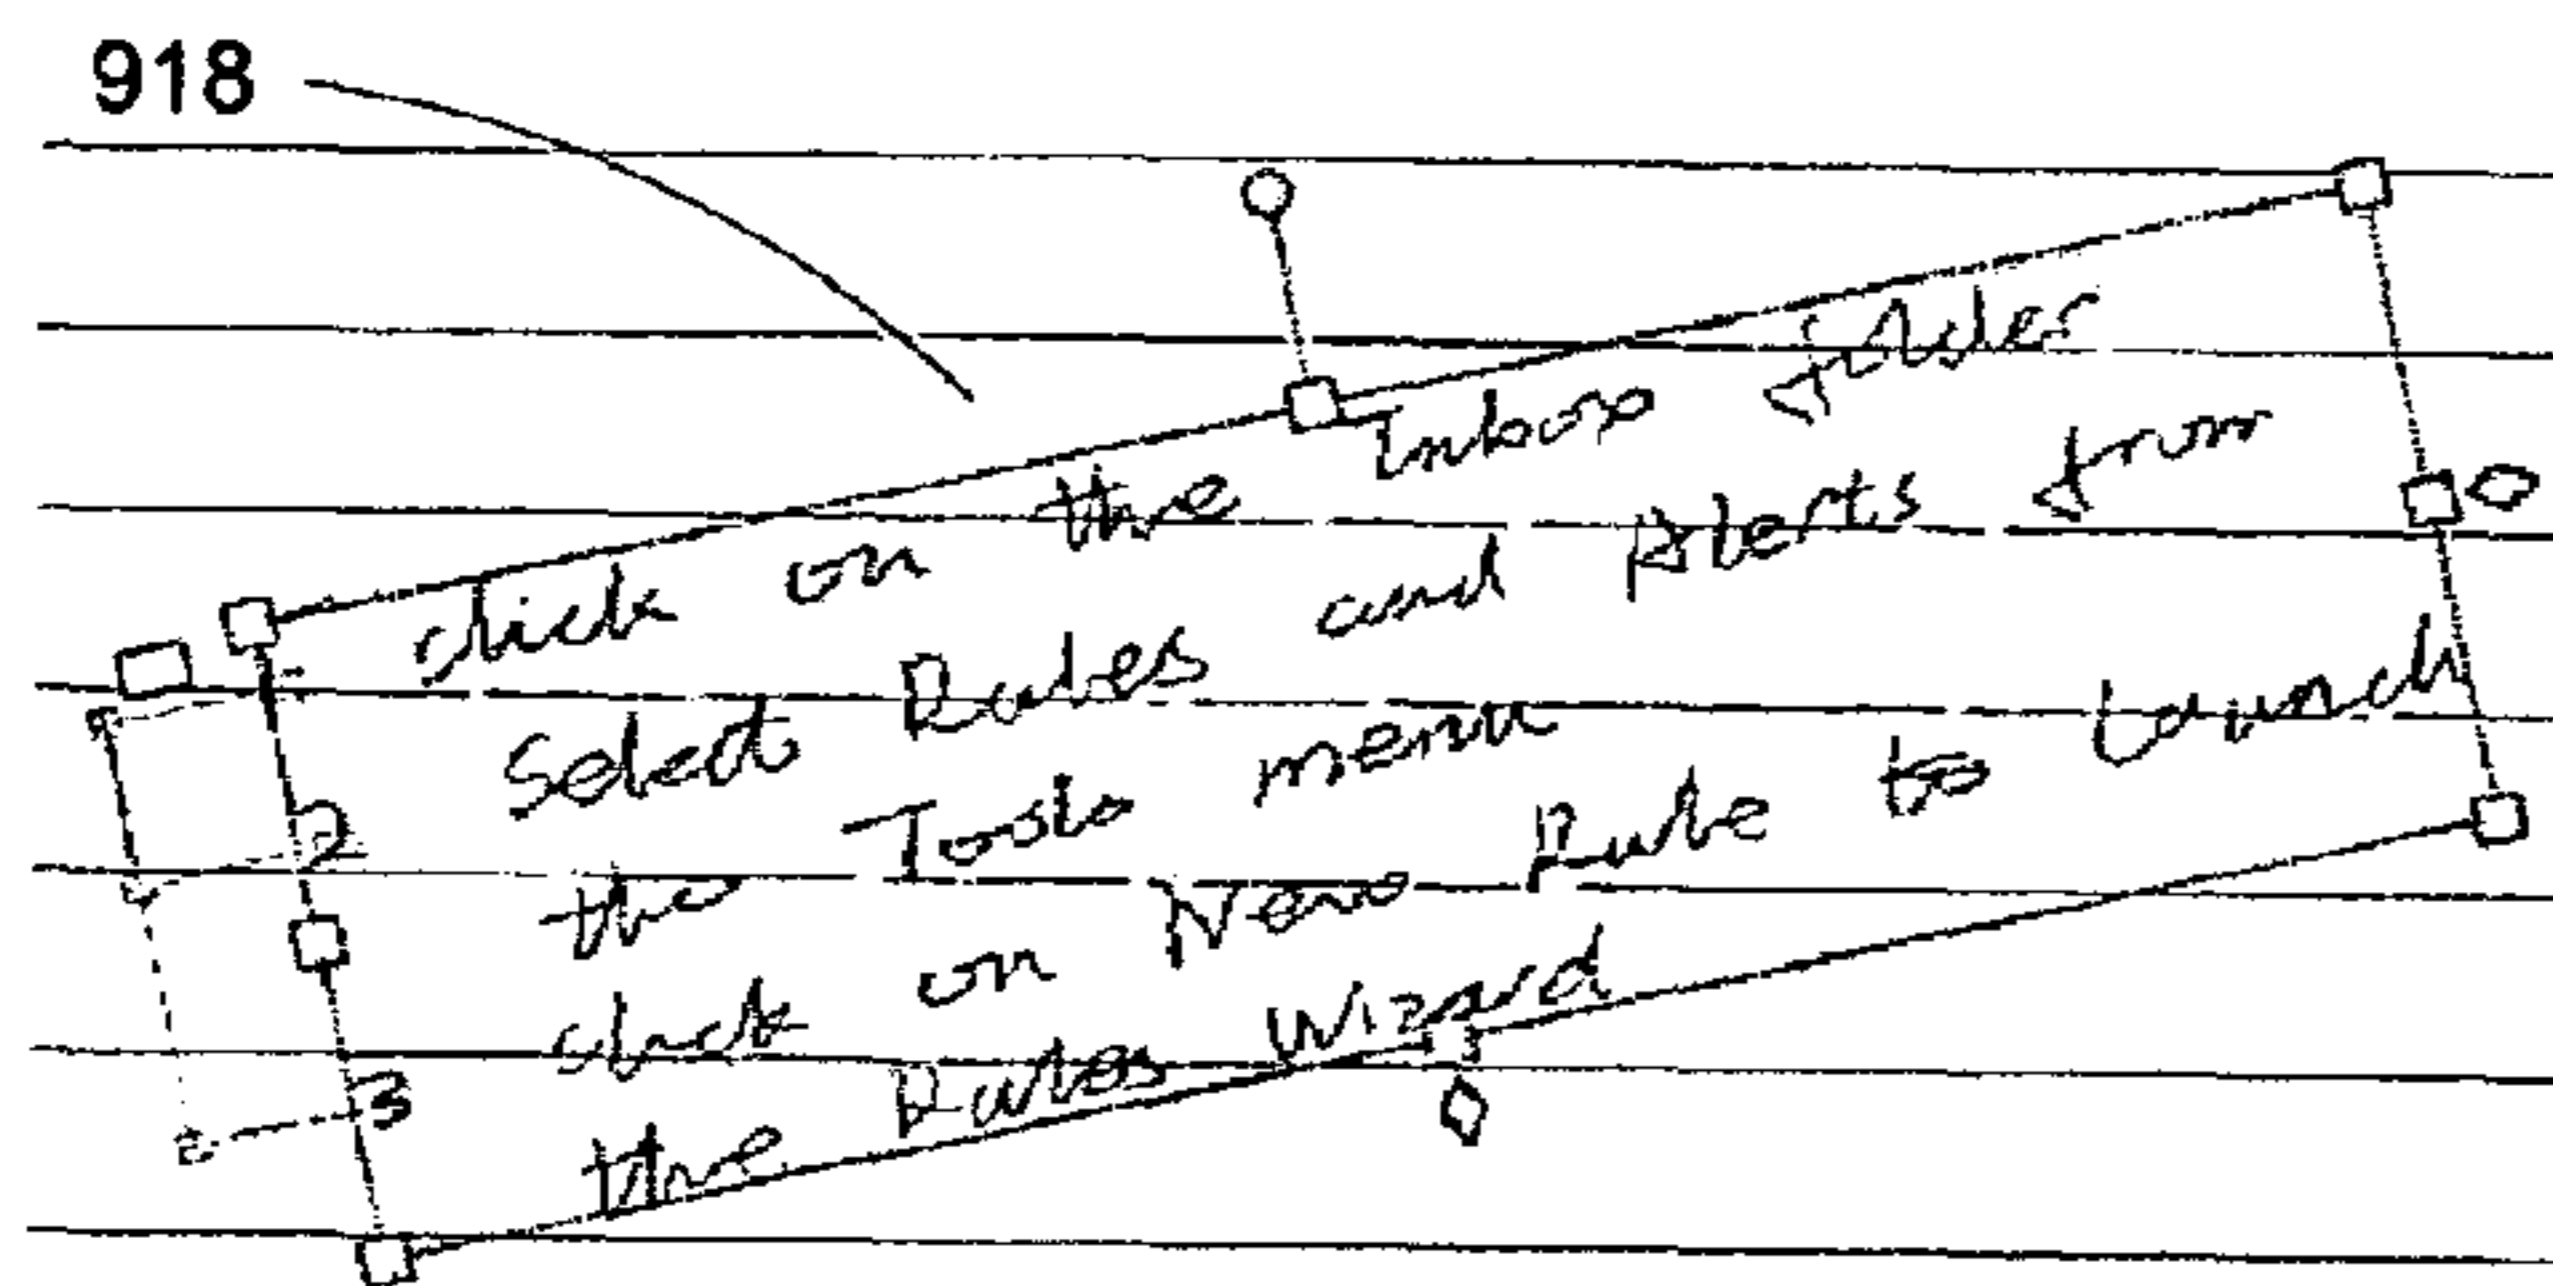 918
1 click on the Inbox folder
2 Select Rules and Alerts from
the Tools menu
3 click on New Rule to launch
the Rules Wizard